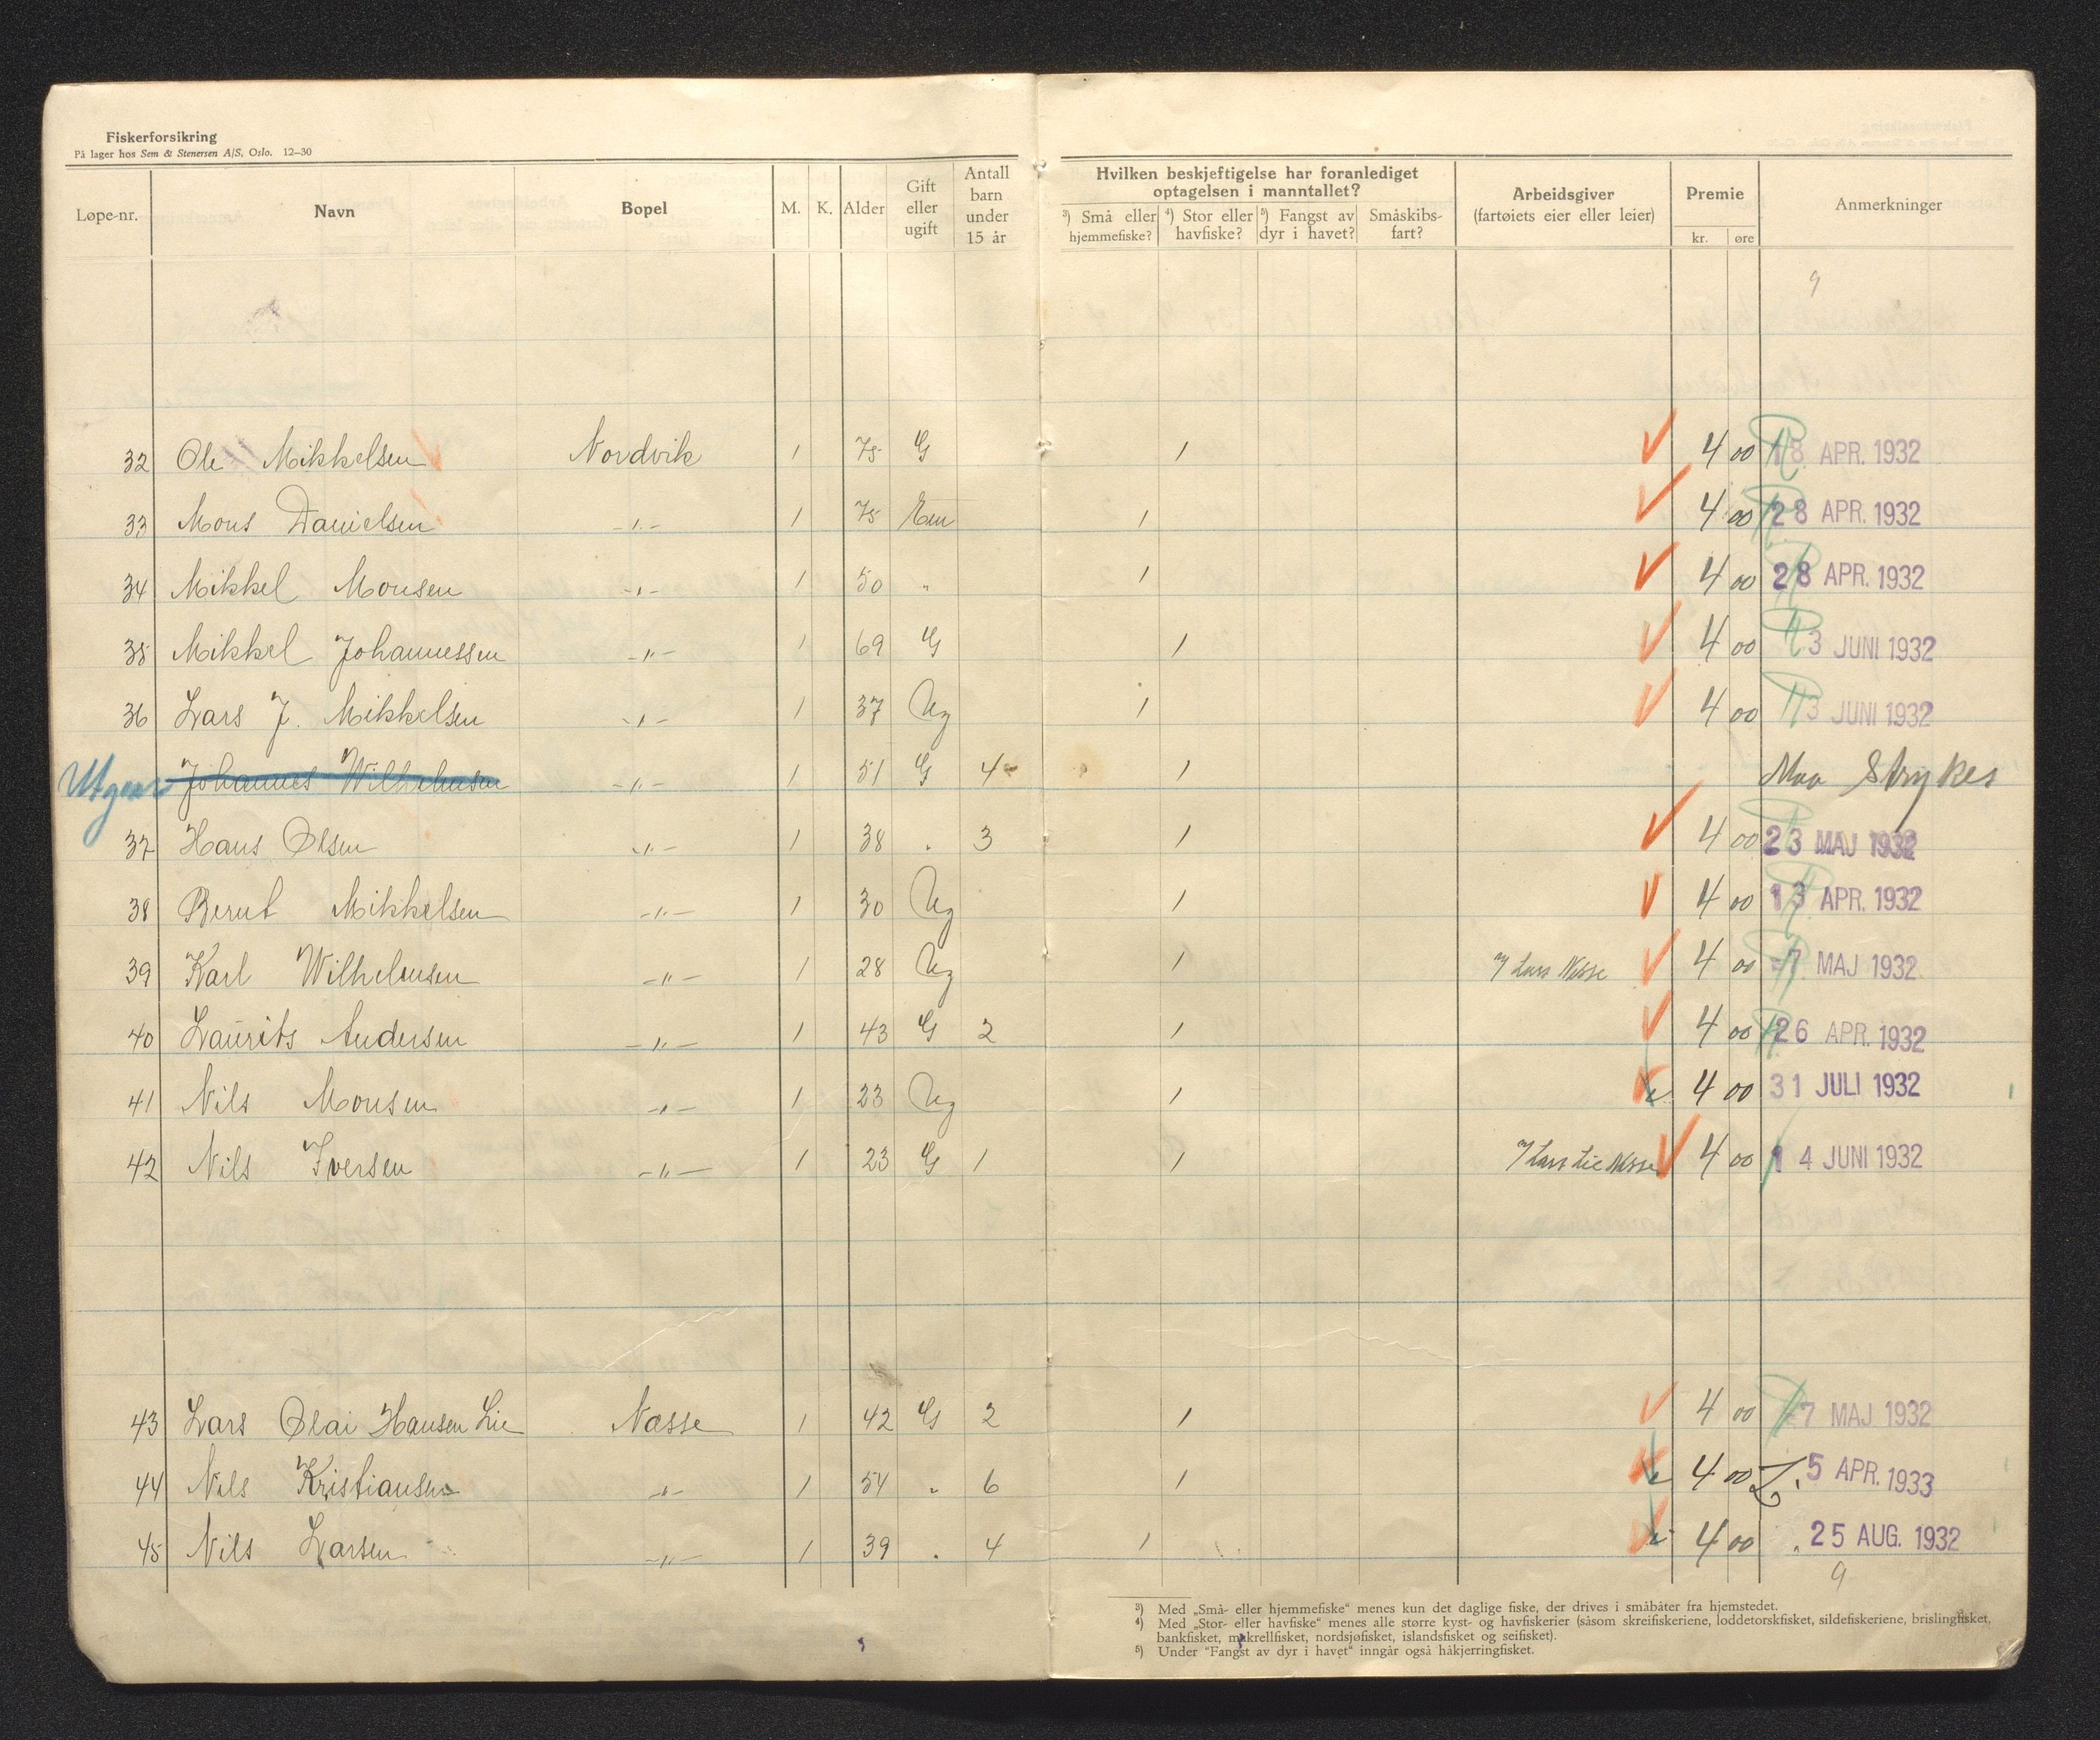 Fiskerforsikring
På lager hos Sem & Stenersen A/S, Oslo. 12-30
Løpe-nr. Navn Bopel M. K. Alder Gift eller ugift Antall barn under 15 år Hvilken beskjeftigelse har foranlediget optagelsen i manntallet? ³) Små eller hjemmefiske? ⁴) Stor eller havfiske? ⁵) Fangst av dyr i havet? Småskibsfart? Arbeidsgiver (fartøiets eier eller leier) Premie kr. øre Anmerkninger
9
32 Ole Mikkelsen Nordvik 1 75 G 1 4 00 18 APR. 1932
33 Mons Danielsen -"- 1 75 Em 1 4 00 28 APR. 1932
34 Mikkel Monsen -"- 1 50 " 1 4 00 28 APR. 1932
35 Mikkel Johannessen -"- 1 69 G 1 4 00 3 JUNI 1932
36 Lars J. Mikkelsen -"- 1 37 Ug 1 4 00 3 JUNI 1932
Utgaar Johannes Wilhelmsen -"- 1 51 G 4 1 Maa Strykes
37 Hans Olsen -"- 1 38 " 3 1 4 00 23 MAJ 1932
38 Bernt Mikkelsen -"- 1 30 Ug 1 4 00 13 APR. 1932
39 Karl Wilhelmsen -"- 1 28 Ug 1 Lars Nesse 4 00 -7 MAJ 1932
40 Laurits Andersen -"- 1 43 G 2 1 4 00 26 APR. 1932
41 Nils Monsen -"- 1 23 Ug 1 4 00 31 JULI 1932
42 Nils Iversen -"- 1 23 G 1 1 Lars Lie Nesse 4 00 14 JUNI 1932
43 Lars Olai Hansen Lie Nasse 1 42 G 2 1 4 00 -7 MAJ 1932
44 Nils Kristiansen -"- 1 54 " 6 1 4 00 5 APR. 1933
45 Nils Larsen -"- 1 39 " 4 1 4 00 25 AUG. 1932
9
³) Med „Små- eller hjemmefiske“ menes kun det daglige fiske, der drives i småbåter fra hjemstedet.
⁴) Med „Stor- eller havfiske“ menes alle større kyst- og havfiskerier (såsom skreifiskeriene, loddetorskfisket, sildefiskeriene, brislingfisket,
bankfisket, makrellfisket, nordsjøfisket, islandsfisket og seifisket).
⁵) Under "Fangst av dyr i havet“ inngår også håkjerringfisket.